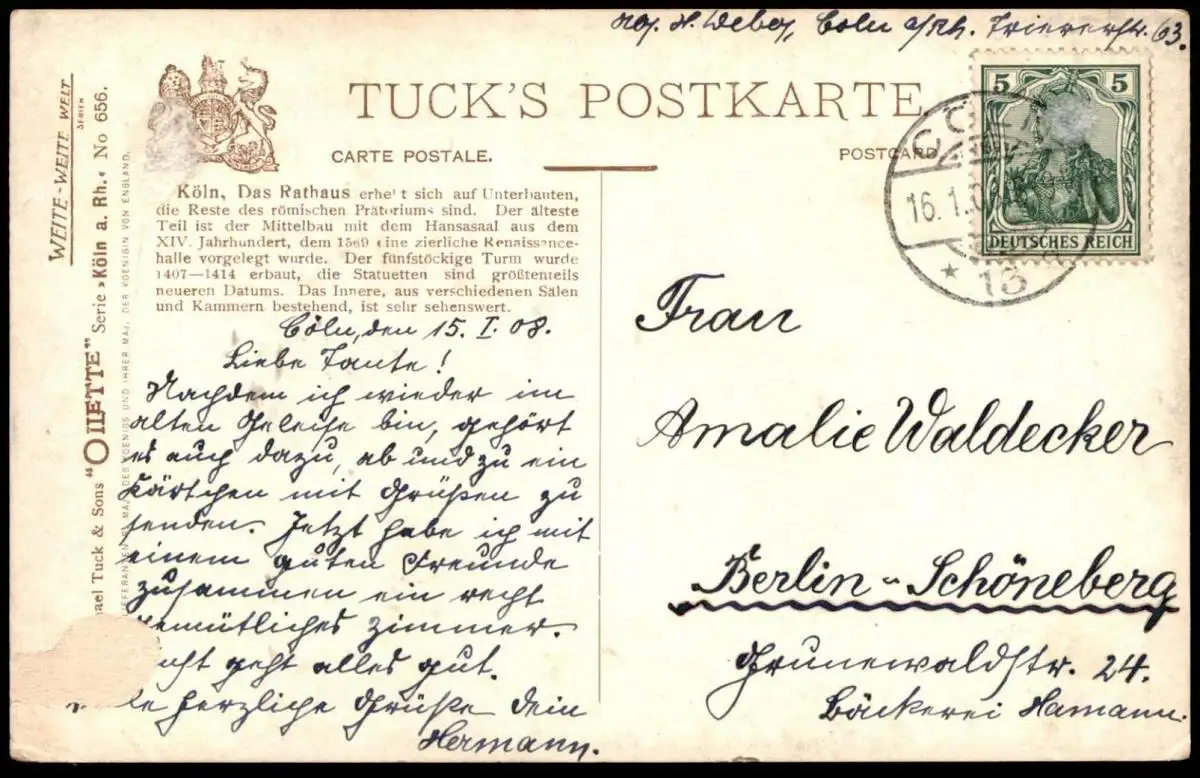 H. Weber, Coeln a/Rh. Triererstr. 63.
TUCK'S POSTKARTE
CARTE POSTALE.
POSTCARD
5 5
DEUTSCHES REICH
16.1.0
* 13
WEITE-WEITE WELT
SERIEN
Serie »Köln a. Rh.« No 656.
Tuck & Sons "OILETTE"
MAJ. DES KOENIGS UND IHRER MAJ. DER KOENIGIN VON ENGLAND.
Köln, Das Rathaus erhebt sich auf Unterbauten,
die Reste des römischen Prätoriums sind. Der älteste
Teil ist der Mittelbau mit dem Hansasaal aus dem
XIV. Jahrhundert, dem 1569 eine zierliche Renaissance-
halle vorgelegt wurde. Der fünfstöckige Turm wurde
1407—1414 erbaut, die Statuetten sind größtenteils
neueren Datums. Das Innere, aus verschiedenen Sälen
und Kammern bestehend, ist sehr sehenswert.
Cöln, den 15. I. 08.
Liebe Tante!
Nachdem ich wieder im
alten Geleise bin, gehört
es auch dazu, ab und zu ein
Kärtchen mit Grüßen zu
senden. Jetzt habe ich mit
einem guten Freunde
zusammen ein recht
gemütliches Zimmer.
geht alles gut.
herzliche Grüße Dein
Hermann.
Frau
Amalie Waldecker
Berlin-Schöneberg
Grunewaldstr. 24.
Bäckerei Hamann.